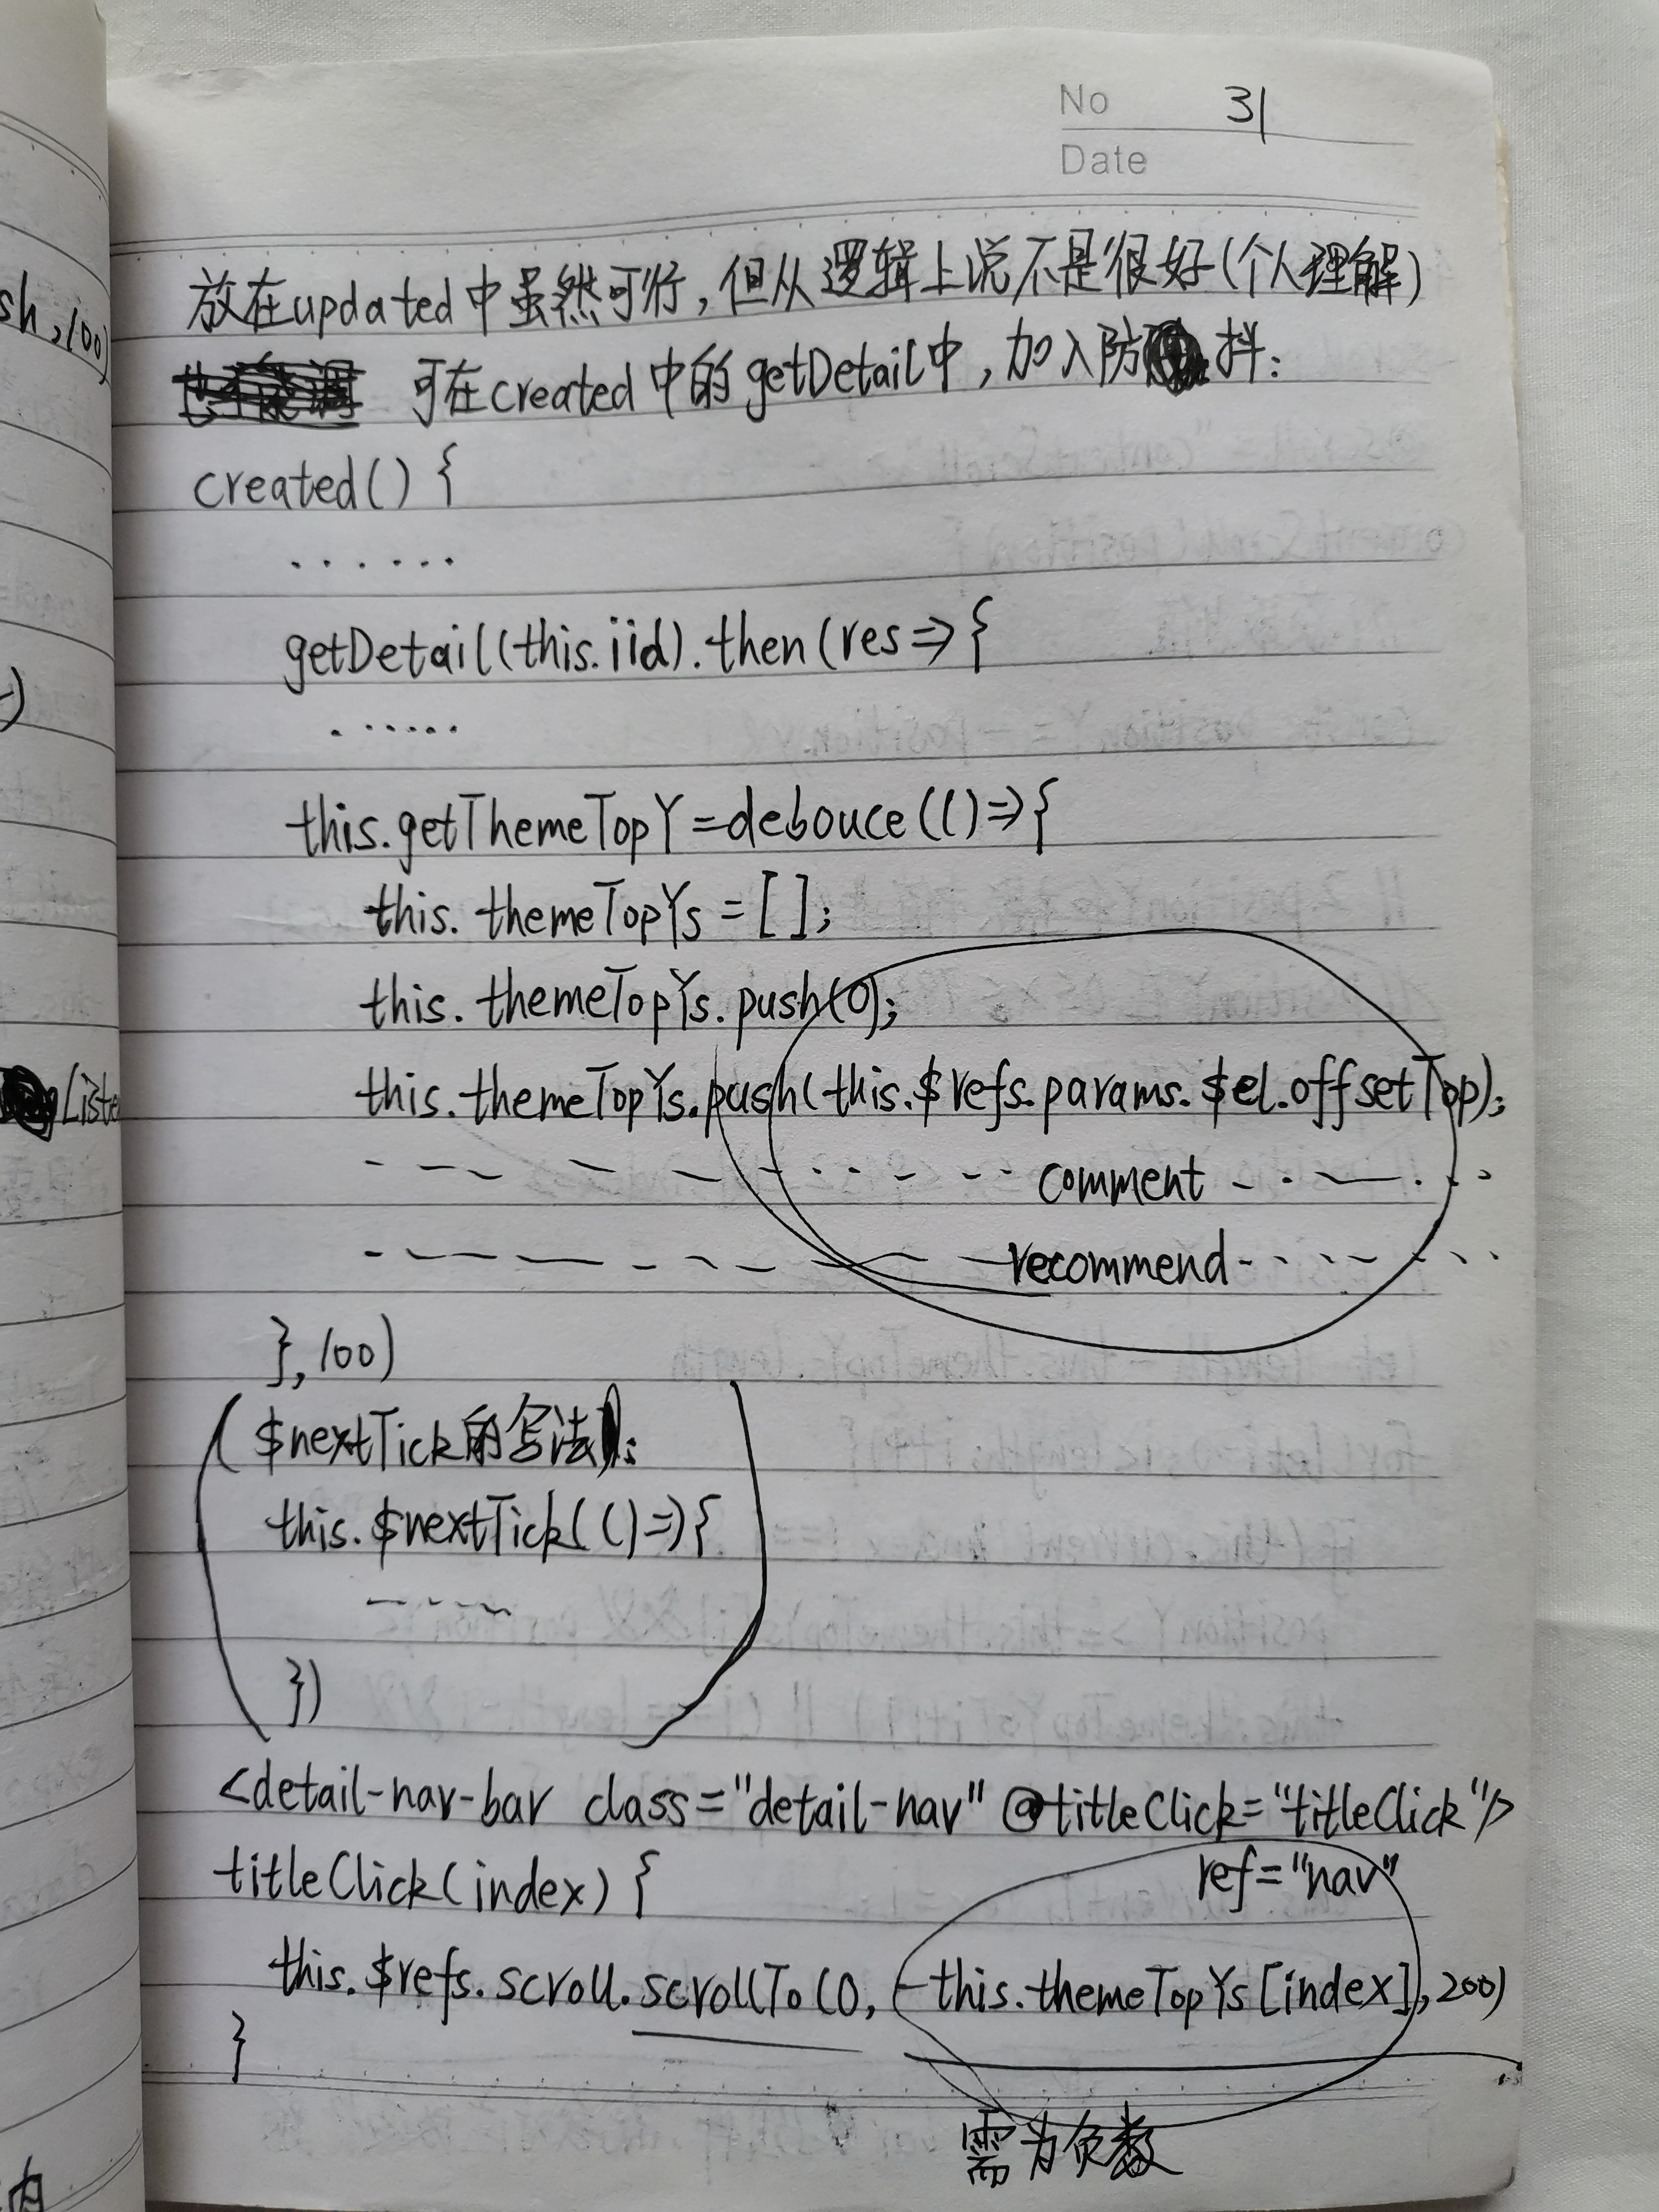 No 31
Date
放在updated中虽然可行,但从逻辑上说不是很好(个人理解)
可在created中的getDetail中,加入防抖:
created() {
......
getDetail(this.iid).then(res=>{
......
this.getThemeTopY=debouce(()=>{
this.themeTopYs=[];
this.themeTopYs.push(0);
this.themeTopYs.push(this.$refs.params.$el.offsetTop);
comment
recommend
},100)
($nextTick的写法):
this.$nextTick(()=>{
})
<detail-nav-bar class="detail-nav" @titleClick="titleClick"/>
ref="nav"
titleClick(index) {
this.$refs.scroll.scrollTo(0,-this.themeTopYs[index],200)
}
需为负数
sh,100)
Liste
内